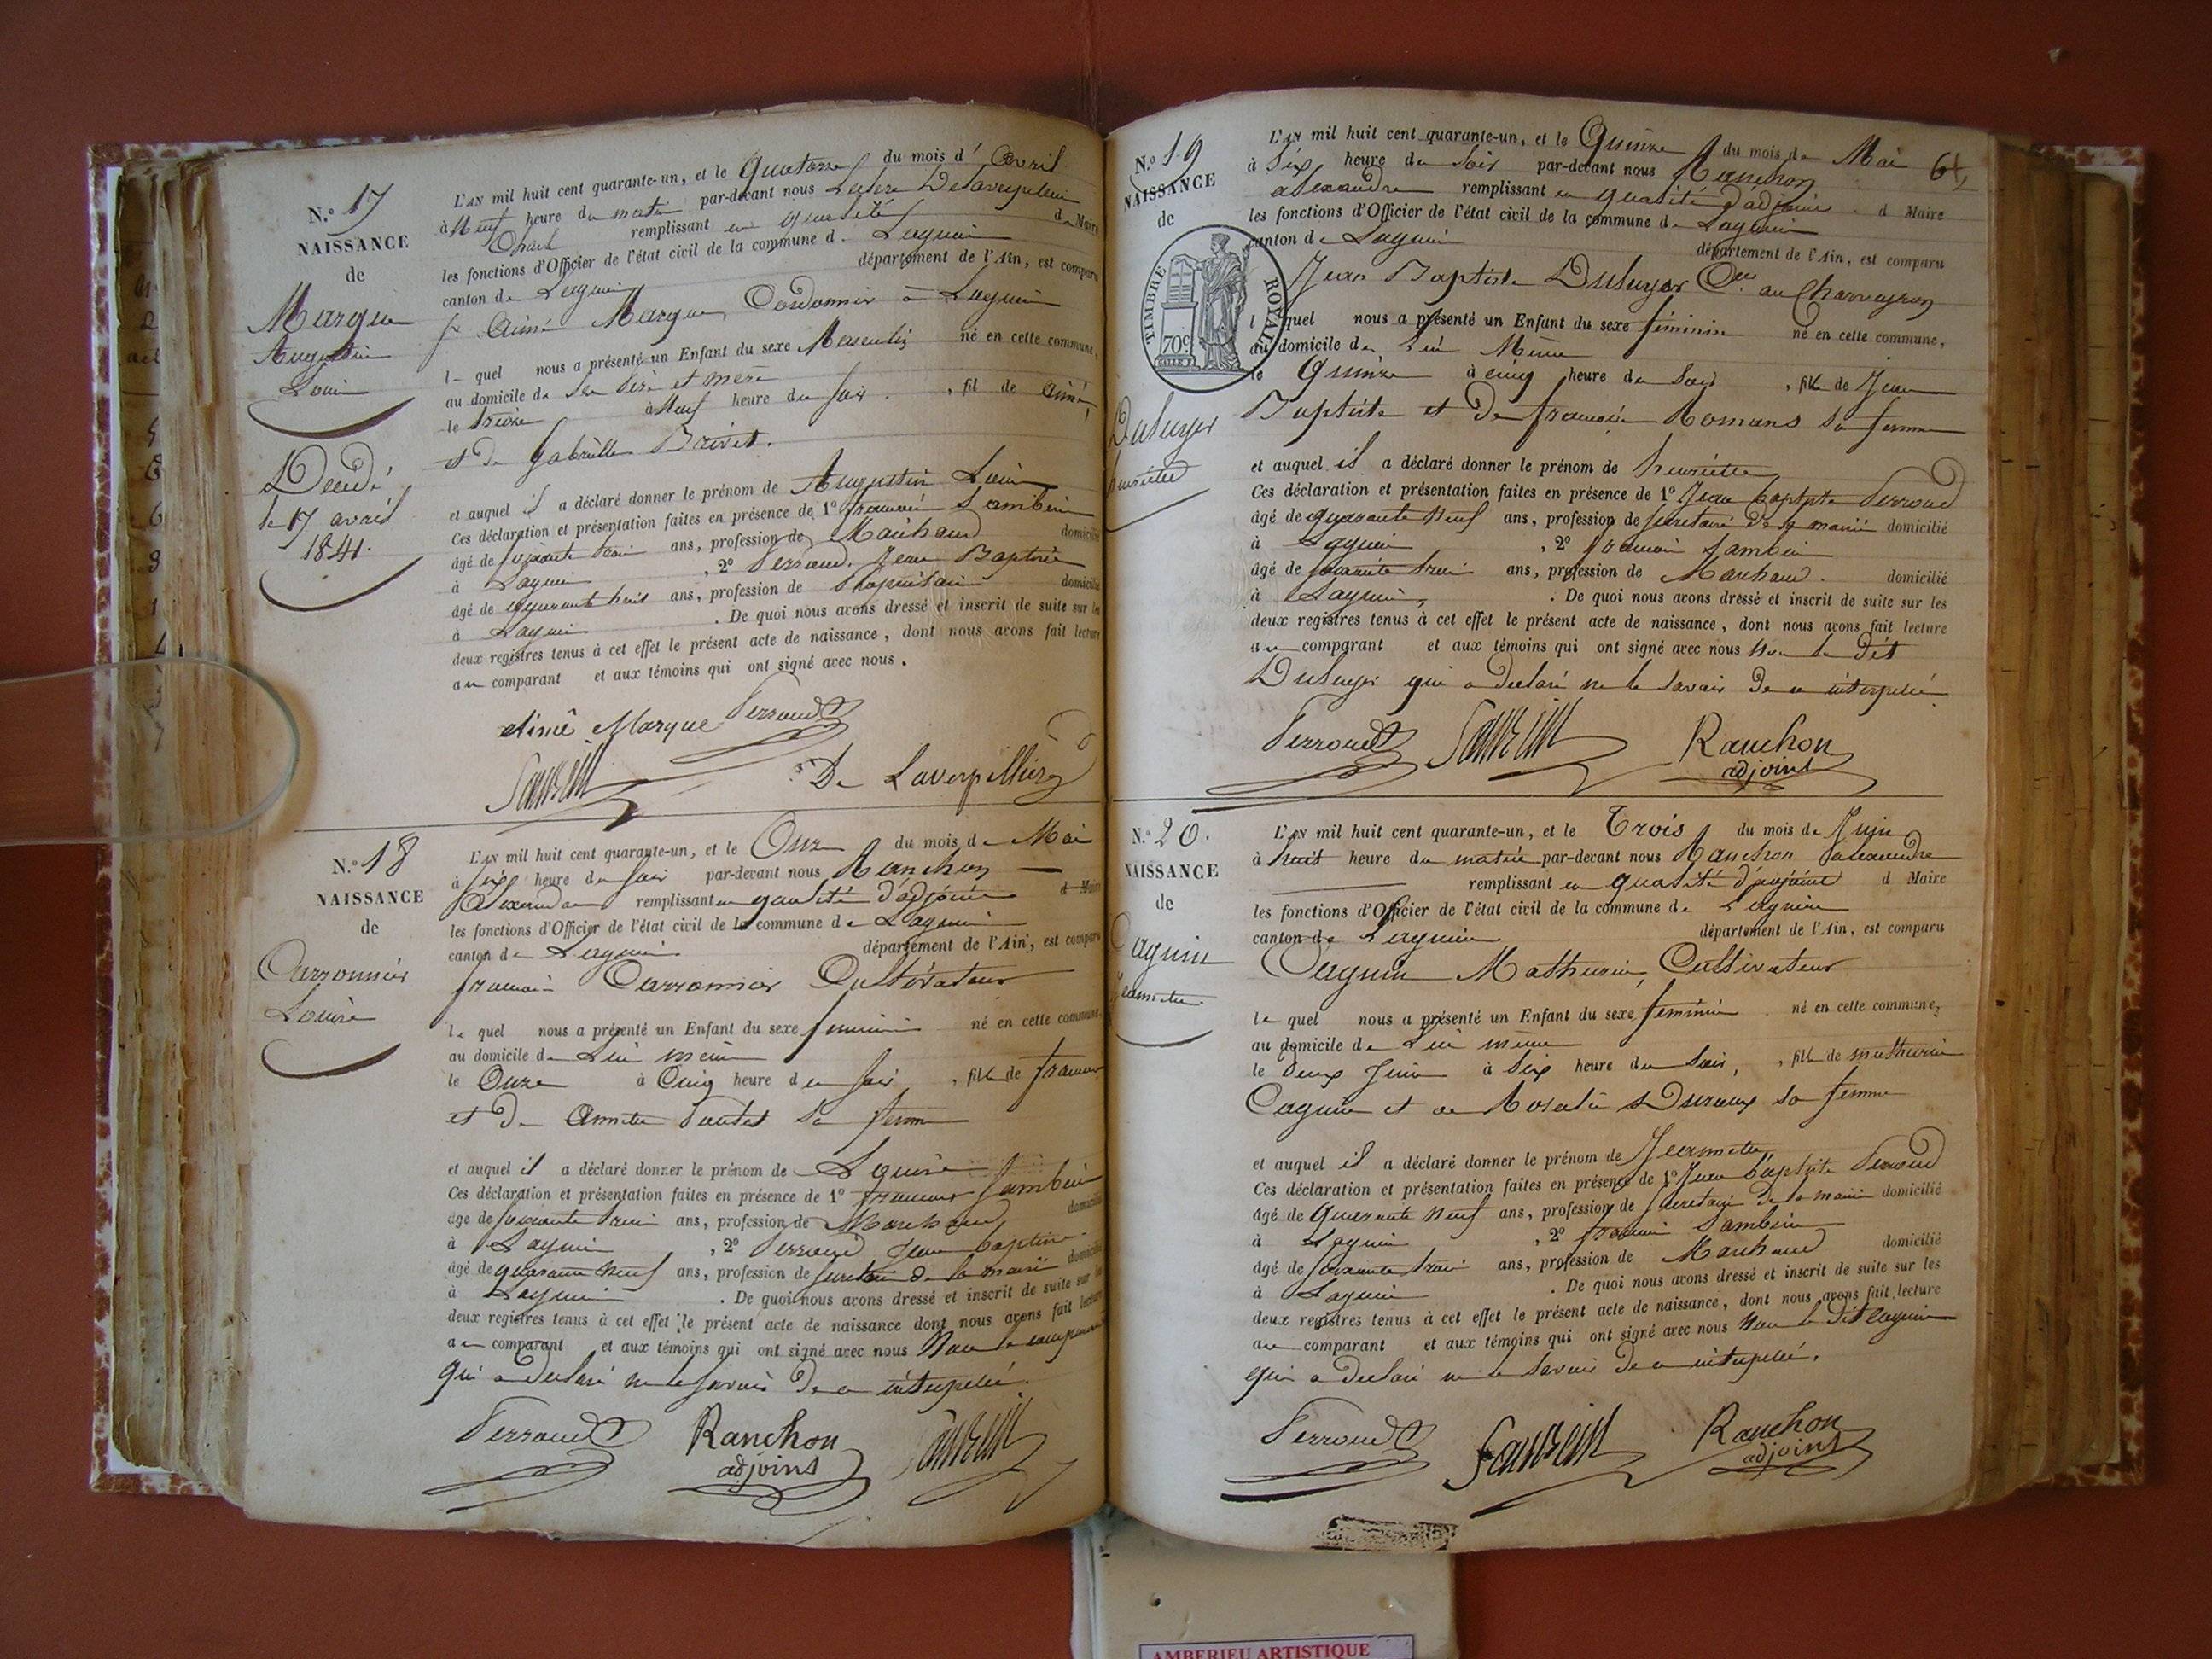 N.º 17
NAISSANCE
de
Marque
Augustin
Louis
Décédé
le 17 avril
1841.
L'AN mil huit cent quarante-un, et le Quatorze du mois d' avril
à Neuf heure du matin par-devant nous
remplissant en qualité d Maire
les fonctions d'Officier de l'état civil de la commune d. Lagnieu
canton de Lagnieu département de l'Ain, est comparu
Aimé Marque Cordonnier à Lagnieu
l quel nous a présenté un Enfant du sexe Masculin né en cette commune,
au domicile de ses Père et mère
le treize à Neuf heure du soir , fil de Aimé
et de Gabrielle Brivet.
et auquel il a déclaré donner le prénom de Augustin Louis
Ces déclaration et présentation faites en présence de 1º françois
âgé de soixante trois ans, profession de Marchand domicilié
à Lagnieu , 2º Perroud Jean Baptiste
âgé de quarante huit ans, profession de Propriétaire domicilié
à Lagnieu . De quoi nous avons dressé et inscrit de suite sur les
deux registres tenus à cet effet le présent acte de naissance, dont nous avons fait lecture
au comparant et aux témoins qui ont signé avec nous.
Aimé Marque Perroud
De Laverpillière
N.º 18
NAISSANCE
de
Carronnier
Louise
L'AN mil huit cent quarante-un, et le Onze du mois de Mai
à six heure du soir par-devant nous Ranchon
Alexandre remplissant en qualité d'adjoint d Maire
les fonctions d'Officier de l'état civil de la commune de Lagnieu
canton de Lagnieu département de l'Ain, est comparu
françois Carronnier Cultivateur
le quel nous a présenté un Enfant du sexe feminin né en cette commune,
au domicile de Lui même
le Onze à Cinq heure du soir , fille de françois
et de Annette sa femme
et auquel il a déclaré donner le prénom de Louise
Ces déclaration et présentation faites en présence de 1º françois
âgé de soixante trois ans, profession de Marchand domicilié
à Lagnieu , 2º Perroud Jean baptiste
âgé de quarante neuf ans, profession de secretaire de la mairie domicilié
à Lagnieu . De quoi nous avons dressé et inscrit de suite sur les
deux registres tenus à cet effet le présent acte de naissance dont nous avons fait lecture
au comparant et aux témoins qui ont signé avec nous Non le comparant
qui a declaré ne le savoir de ce interpellé.
Perroud Ranchon
adjoint
64
N.º 19
NAISSANCE
de
TIMBRE ROYAL
70c
Dubuyer
henriette
L'AN mil huit cent quarante-un, et le Quinze du mois de Mai
à Six heure du soir par-devant nous Ranchon
alexandre remplissant en qualité d'adjoint d Maire
les fonctions d'Officier de l'état civil de la commune de Lagnieu
canton de Lagnieu département de l'Ain, est comparu
Jean Baptiste Dubuyer au Charveyron
l quel nous a présenté un Enfant du sexe féminin né en cette commune,
au domicile de Lui Même
le Quinze à cinq heure du soir , fille de Jean
Baptiste et de françoise Romans sa femme
et auquel il a déclaré donner le prénom de henriette
Ces déclaration et présentation faites en présence de 1º Jean baptiste Perroud
âgé de quarante neuf ans, profession de secretaire de la mairie domicilié
à Lagnieu , 2º françois
âgé de soixante trois ans, profession de Marchand . domicilié
à Lagnieu . De quoi nous avons dressé et inscrit de suite sur les
deux registres tenus à cet effet le présent acte de naissance, dont nous avons fait lecture
au comparant et aux témoins qui ont signé avec nous Non le dit
Dubuyer qui a declaré ne le savoir de ce interpellé
Perroud Ranchon
adjoint
N.º 20.
NAISSANCE
de
Cagnin
Jeannette
L'AN mil huit cent quarante-un, et le Trois du mois de Juin
à huit heure du matin par-devant nous Ranchon alexandre
remplissant en qualité d'adjoint d Maire
les fonctions d'Officier de l'état civil de la commune de Lagnieu
canton de Lagnieu département de l'Ain, est comparu
Cagnin Mathurin, Cultivateur
le quel nous a présenté un Enfant du sexe féminin né en cette commune,
au domicile de Lui même
le deux Juin à Six heure du soir, , fille de mathurin
Cagnin et de Rosalie sa femme
et auquel il a déclaré donner le prénom de Jeannette
Ces déclaration et présentation faites en présence de 1º Jean baptiste Perroud
âgé de quarante neuf ans, profession de secretaire de la mairie domicilié
à Lagnieu , 2º françois
âgé de soixante trois ans, profession de Marchand domicilié
à Lagnieu . De quoi nous avons dressé et inscrit de suite sur les
deux registres tenus à cet effet le présent acte de naissance, dont nous avons fait lecture
au comparant et aux témoins qui ont signé avec nous Non le dit Cagnin
qui a declaré ne le savoir de ce interpellé.
Perroud Ranchon
adjoint
AMBERIEU ARTISTIQUE